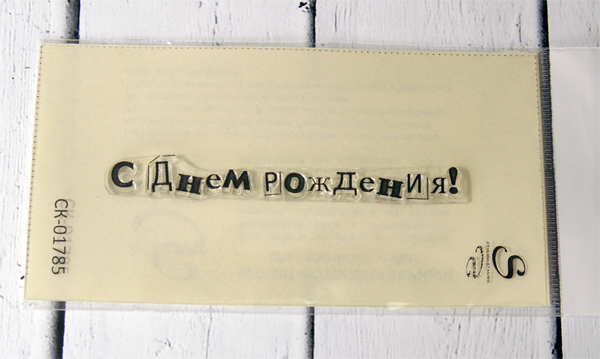 С Днем рождения!
СК-01785